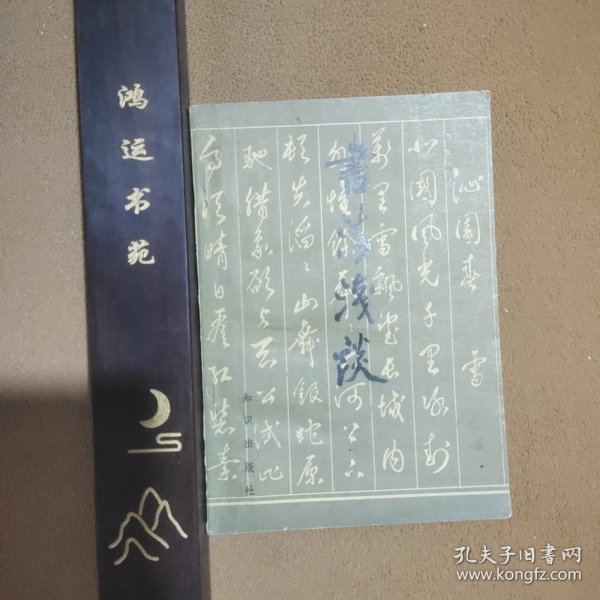 鸿运书苑
沁园春 雪
北国风光千里冰封
万里雪飘望长城内
外惟余莽莽大河上下
顿失滔滔山舞银蛇原
驰腊象欲与天公试比
高须晴日看红装素
书法浅谈
知识出版社
孔夫子旧书网
www.kongfz.com